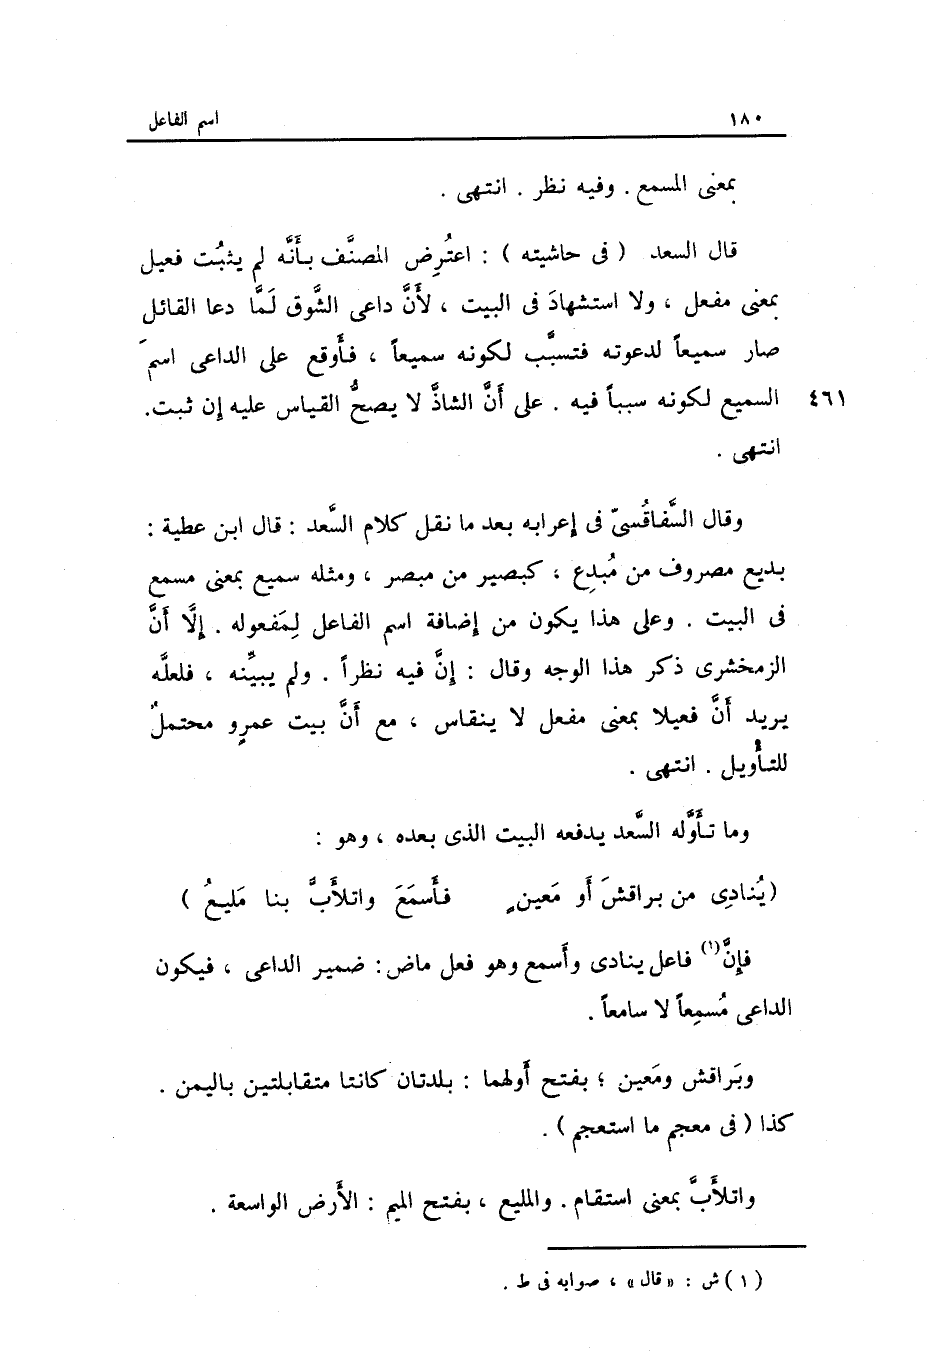 ١٨٠ اسم الفاعل
بمعنى المسمع . وفيه نظر . انتهى .
قال السعد ( فى حاشيته ) : اعتُرِض المصنَّف بأَنَّه لم يثبُت فعيل
بمعنى مفعل ، ولا استشهادَ فى البيت ، لأَنَّ داعى الشَّوق لَمَّا دعا القائل
صار سميعاً لدعوته فتسبَّب لكونه سميعاً ، فأَوقع على الداعى اسمَ
السميع لكونه سبباً فيه . على أَنَّ الشاذَّ لا يصحُّ القياس عليه إن ثبت. ٤٦١
انتهى .
وقال السَّفاقُسىّ فى إعرابه بعد ما نقل كلام السَّعد : قال ابن عطية :
بديع مصروف من مُبدِع ، كبصير من مبصر ، ومثله سميع بمعنى مسمع
فى البيت . وعلى هذا يكون من إضافة اسم الفاعل لِمَفعوله . إلَّا أَنَّ
الزمخشرى ذكر هذا الوجه وقال : إنَّ فيه نظراً . ولم يبيِّنه ، فلعلَّه
يريد أَنَّ فعيلا بمعنى مفعل لا ينقاس ، مع أَنَّ بيت عمرٍو محتملٌ
للتأْويل . انتهى .
وما تأَوَّله السَّعد يدفعه البيت الذى بعده ، وهو :
(يُنادِى من براقشَ أَو مَعينٍ فأَسمَعَ واتلأَبَّ بنا مَليعُ )
فإنَّ(١) فاعل ينادى وأَسمع وهو فعل ماض: ضمير الداعى ، فيكون
الداعى مُسمِعاً لا سامعاً .
وبَراقش ومَعين ؛ بفتح أَولهما : بلدتان كانتا متقابلتين باليمن .
كذا ( فى معجم ما استعجم ) .
واتلأَبَّ بمعنى استقام . والمليع ، بفتح الميم : الأَرض الواسعة .
( ١ ) ش : « قال » ، صوابه فى ط .